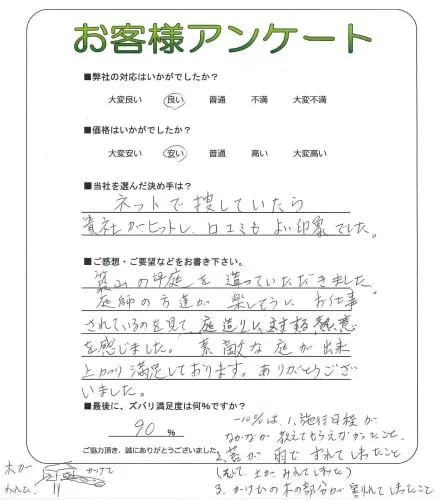 お客様アンケート
■弊社の対応はいかがでしたか?
大変良い 良い 普通 不満 大変不満
■価格はいかがでしたか?
大変安い 安い 普通 高い 大変高い
■当社を選んだ決め手は?
ネットで捜していたら
貴社がヒットし、口コミもよい印象でした。
■ご感想・ご要望などをお書き下さい。
築山の坪庭を造っていただきました。
庭師の方達が楽しそうにお仕事
されているのを見て、庭造りに対する熱意
を感じました。素敵な庭が出来
上がり満足しております。ありがとうござ
いました。
■最後に、ズバリ満足度は何%ですか?
90 %
ご協力頂き、誠にありがとうございました
-10%は、1、施行日程が
なかなか教えてもらえなかったこと。
2、苔が雨でずれてしまったこと
(そして土がみえてしまった)
3、かけひの木の部分が割れてしまったこと
木が
われた
かけて